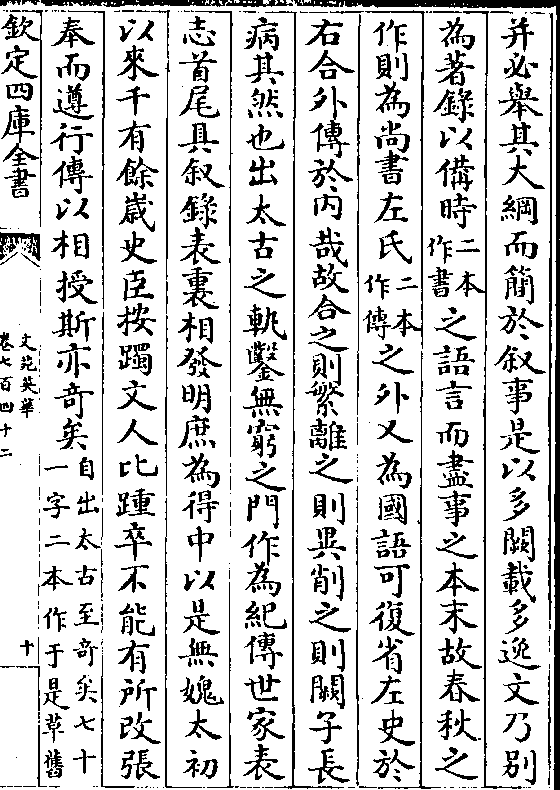 并必舉其大綱而簡於叙事是以多闕載多逸文乃别
為著錄以備時二本作書之語言而盡事之本末故春秋之
作則為尚書左氏二本作傳之外又為國語可復省左史於
右合外傳於内哉故合之則繁離之則異削之則闕子長
病其然也出太古之軌鑿無窮之門作為紀傳世家表
志首尾具叙錄表裏相發明庶為得中以是無媿太初
以來千有餘嵗史臣按躅文人比踵卒不能有所改張
奉而遵行傳以相授斯亦竒矣自出太古至竒矣七十一字二本作于是草舊
欽定四庫全書
文苑英華
卷七百四十二
十